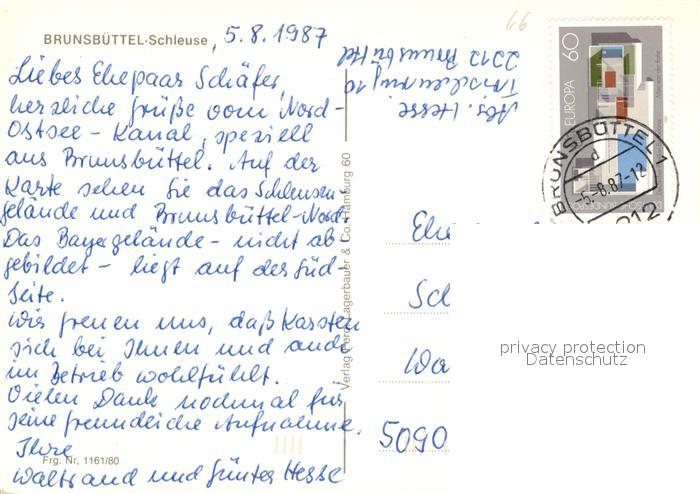 BRUNSBÜTTEL-Schleuse, 5.8.1987
Liebes Ehepaar Schäfer,
herzliche Grüße vom Nord-
Ostsee-Kanal, speziell
aus Brunsbüttel. Auf der
Karte sehen Sie das Schleusen-
gelände und Brunsbüttel-Nord.
Das Bayergelände - nicht ab-
gebildet - liegt auf der Süd-
Seite.
Wir freuen uns, daß Karsten
sich bei Ihnen und auch
im Betrieb wohlfühlt.
Vielen Dank nochmal für
seine freundliche Aufnahme.
Ihre
Waltraud und Günter Hesse
Frg. Nr. 1161/80
Verlag Lagerbauer & Co. Hamburg 60
Abs. Hesse
2212 Brunsbüttel
99
60
EUROPA
DEUTSCHE BUNDESPOST
BRUNSBÜTTEL 1
d
-5.-8.87-12
2212
Ehe
Sch
Wa
5090
privacy protection
Datenschutz